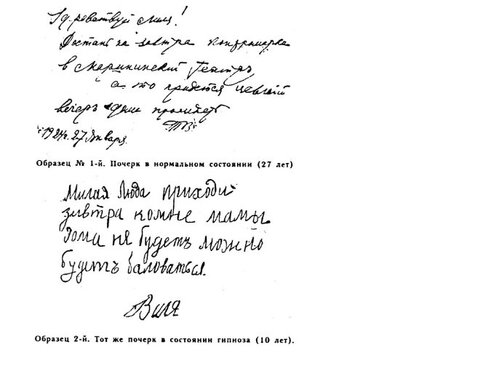 Здравствуй Миля!
Достань на завтра контрамарку
в Мариинский Театръ
а то придется целый
вечеръ одни
1924г. 27 Января
Образец № 1-й. Почерк в нормальном состоянии (27 лет)
Милая Люда приходи
завтра комне мамы
дома ня будетъ можно
будетъ баловаться.
Виля
Образец 2-й. Тот же почерк в состоянии гипноза (10 лет).